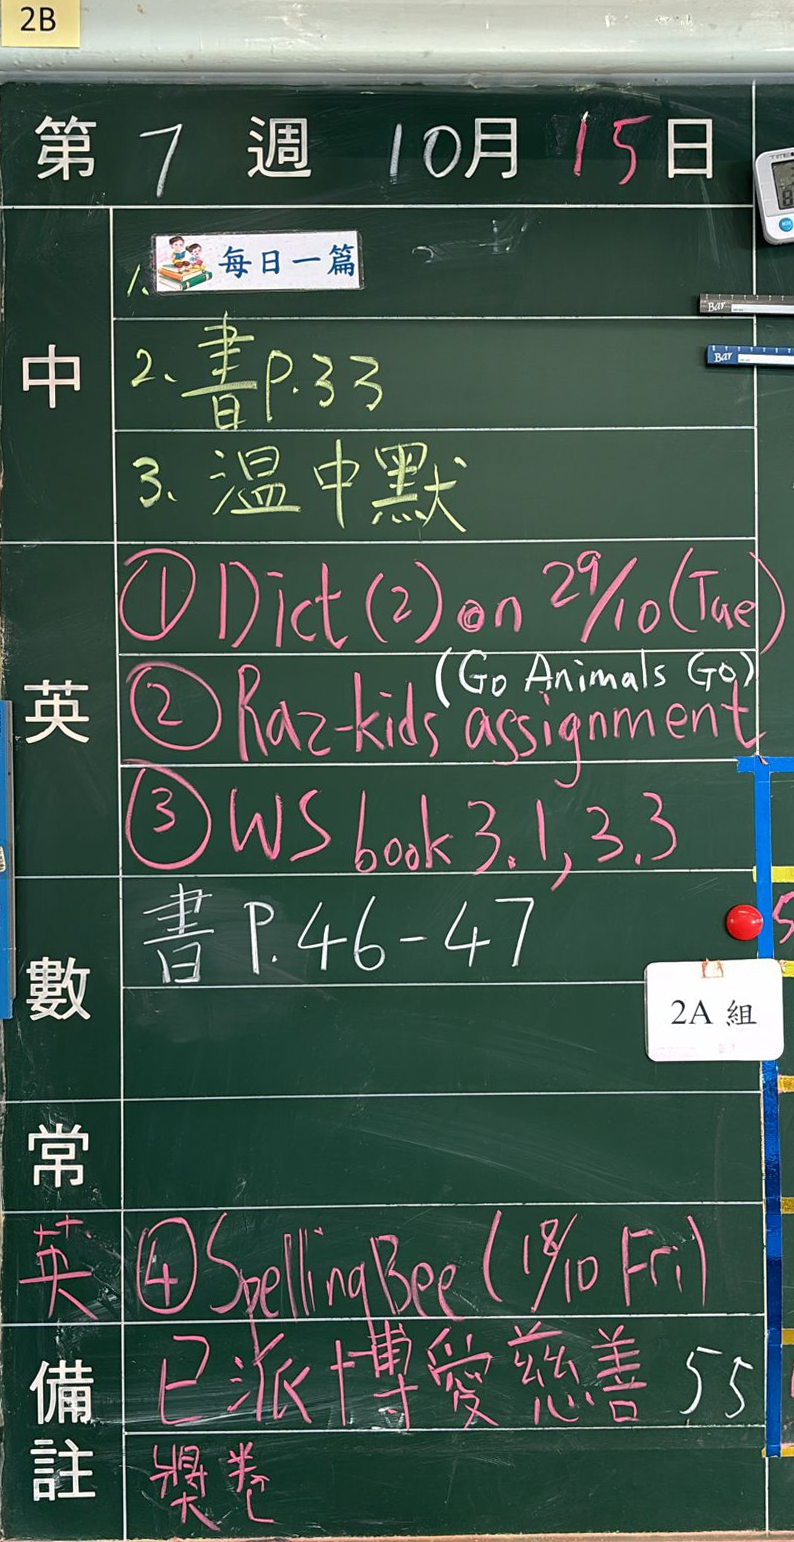 2B
第 7 週 10月 15日
中
1. 每日一篇
2. 書 P.33
3. 溫中默
英
① Dict (2) on 29/10 (Tue)
(Go Animals Go)
② Raz-kids assignment
③ WS book 3.1, 3.3
數
書 P.46-47
2A 組
常
英 ④ Spelling Bee (18/10 Fri)
備註
已派博愛慈善 55
獎卷
Bar
Bar